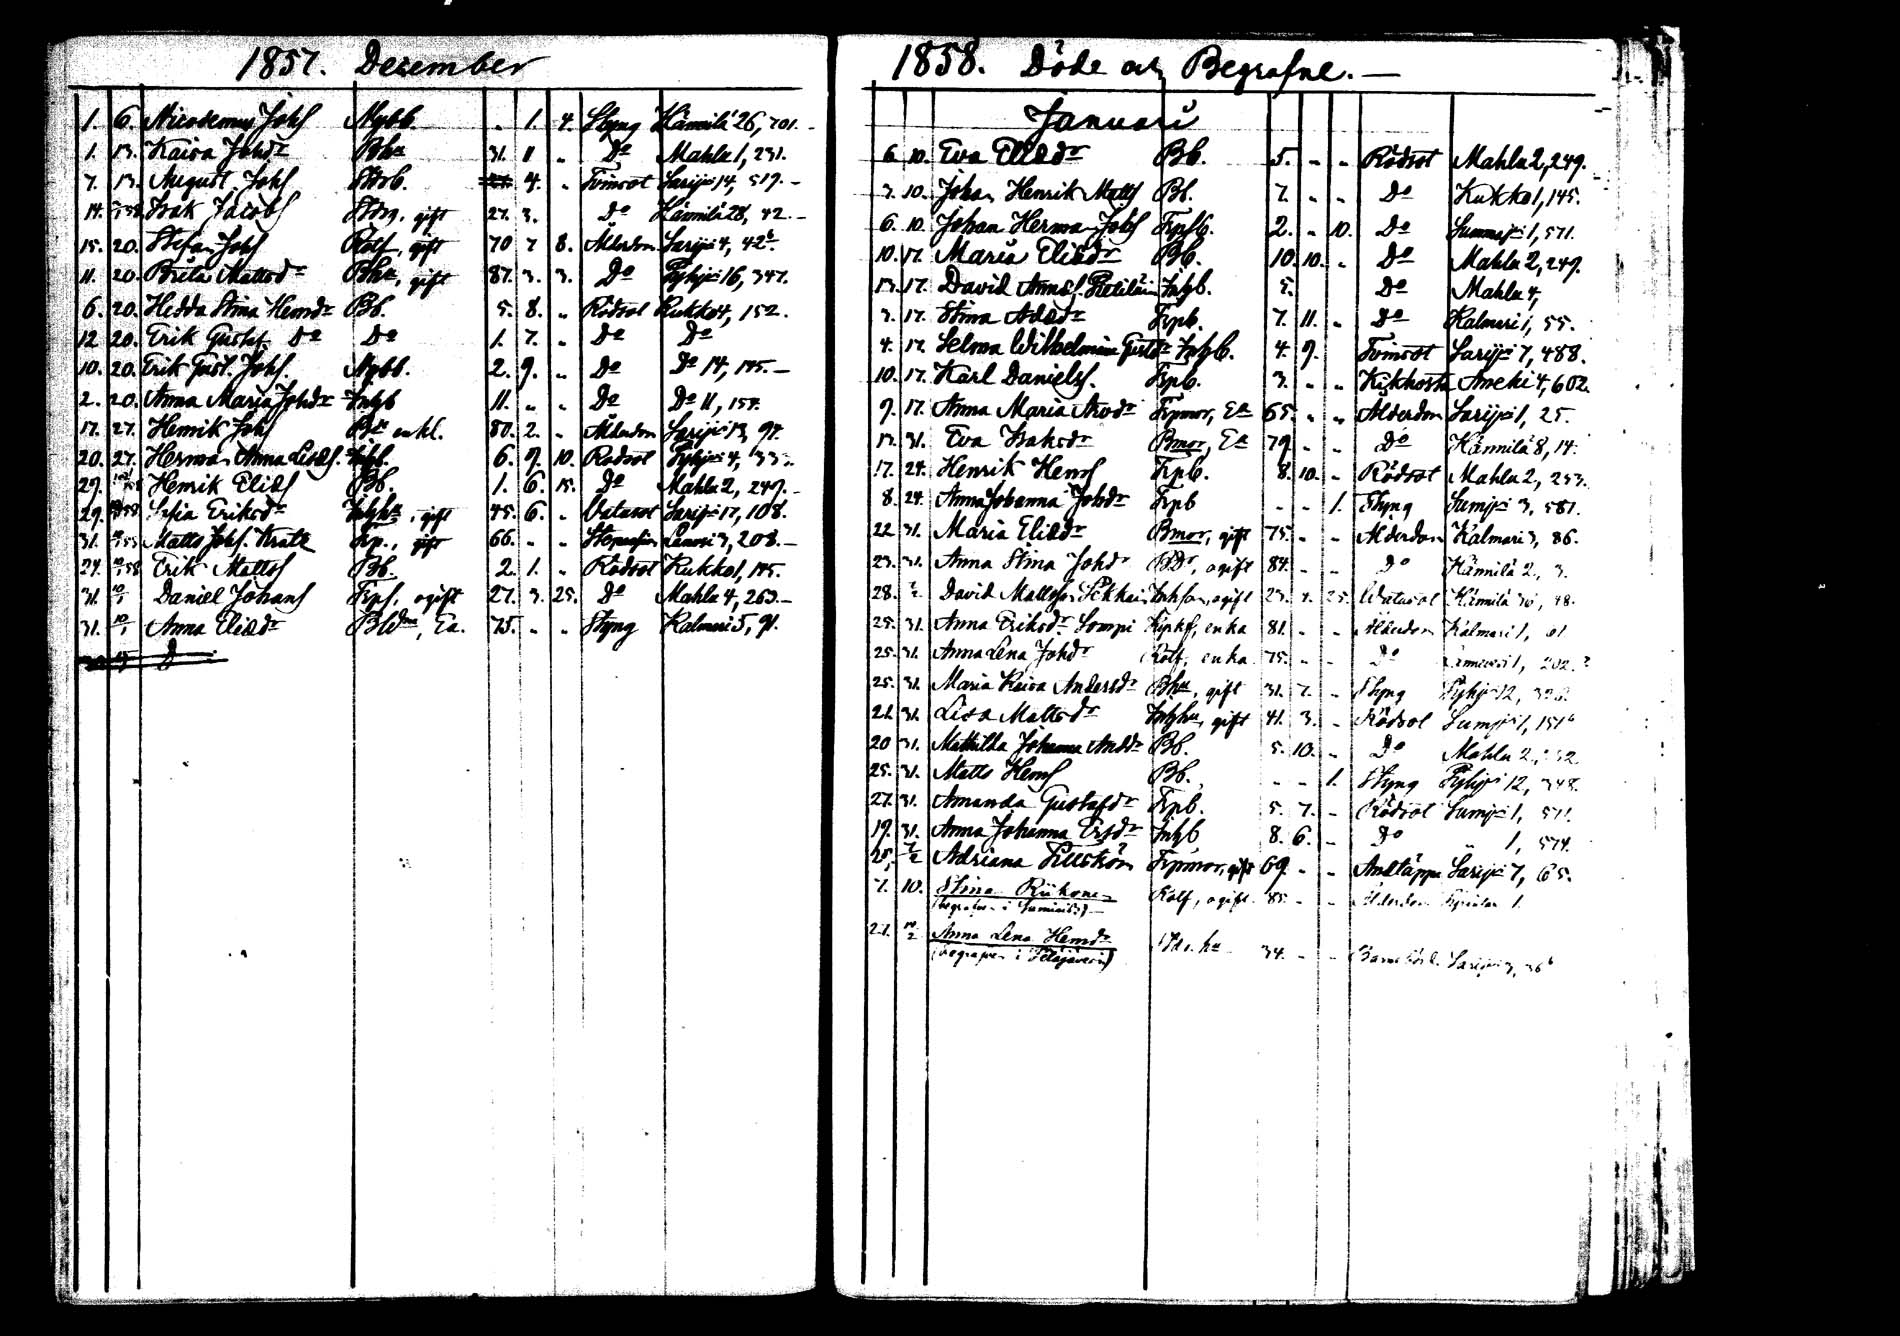 1857. December
1. 6. Nicodemus Johs Nybb. „ 1. 4. Slagg Hännilä 26, 701. -
1. 13. Kaisa Johdr Bhu 31. 11 „ Do Mahla 1, 231.
7. 13. August Johs 4. „ Tvinsot Sarijärvi 14, 519. -
14. Isak Jacobs gift 27. 3. Do Hännilä 28, 42. -
15. 20. Stefan Johs Rotf, gift 70 7 8. Ålderdom Sarij 4, 42b.
11. 20. Brita Mattsdr Bhu, gift 87. 3. 3. Do Pyhj 16, 347.
6. 20. Hedda Stina Hemdr Bb. 5. 8. „ Rödsot Kukko 4, 152.
12 20. Erik Gustaf Do Do 1. 7. „ Do Do
10. 20. Erik Gust. Johs. Nybb. 2. 9. „ Do Do 14, 145. -
2. 20. Anna Maria Johdr Inhb 11. „ „ Do Do 11, 157.
17. 27. Henrik Johs enkl. 80. 2. „ Ålderdom Sarij 13, 97.
20. 27. Herman Anna Lisas. Inhb. 6. 9. 10. Rödsot Pyhj 4,
29. Henrik Elias Bb. 1. 6. 15. Do Mahla 2, 249. -
29. Sofia Eriksdr Inhhu, gift 45. 6. „ Vatusot Sarij 17, 108.
31. Matts Johs. Kratz Trp., gift 66. „ „ 3, 208. -
24. Erik Matts Bb. 2. 1. „ Rödsot Kukko 1, 145.
31. 10/1 Daniel Johans Trps, ogift 27. 3. 25. Do Mahla 4, 263. -
31. 10/1 Anna Eliædr Ea. 75. „ „ Slagg Kalmari 5, 91.

1858. Döde och Begrafne. —
Januari
6 10. Eva Eliædr Bb. 5. „ „ Rödsot Mahla 2, 249.
3. 10. Johan Henrik Matts Bb. 7. „ „ Do Kukko 1, 145.
6. 10. Johan Herman Johs Trpb. 2. „ 10. Do Sumij 1, 571.
10. 17. Maria Eliædr Bb. 10. 10. „ Do Mahla 2, 249.
13. 17. David Annas. Inhb. 5. Do Mahla 4,
3. 17. Stina Adædr Trpb. 7. 11. „ Do Kalmari 1, 55.
4. 17. Selma Wilhelmina Gustdr Inhb. 4. 9. Tvinsot Sarij 7, 488.
10. 17. Karl Daniels. Trpb. 3. „ „ Kikhosta 4, 602.
9. 17. Anna Maria Trpmor, Ea 65. „ „ Ålderdom Sarij 1, 25.
17. 31. Eva Isaksdr Bmor, Ea 79 „ „ Do Hännilä 8, 14.
17. 24. Henrik Hems Trpb. 8. 10. „ Rödsot Mahla 2, 253.
8. 24. Anna Johanna Johdr Trpb - - 1. Slagg Sumij 3, 581.
22 31. Maria Eliædr Bmor, gift 75. - - Ålderdom Kalmari 3, 86.
23. 31. Anna Stina Johdr ogift 84. - - Do Hännilä 2, 3.
28. 7/2 David Mattsson ogift 23. 4. 25. Watusot Hännilä 30, 48.
25. 31. Anna Eriksdr Lompi enka 81. - - Ålderdom Kalmari 1,
25. 31. Anna Lena Johdr Rotf, enka 75. - - Do 1, 202.
25. 31. Maria Kaisa Andersdr Bhu, gift 31. 7. „ Slagg Pyhj 12,
21. 31. Lisa Mattsdr Inhhu, gift 41. 3. - Rödsot Sumij 1, 151b
20 31. Mathilda Johanna Andsdr Bb. 5. 10. - Do Mahla 2,
25. 31. Matts Hems Bb. - - 1. Slagg Pyhj 12, 348.
27. 31. Amanda Gustafdr Trpb. 5. 7. - Rödsot Sumij 1, 571.
19. 31. Anna Johanna Ersdr Inhb 8. 6. - Do „ 1, 574.
25, 7/2 Adriana Trpmor, gift 69 - - Andtäppa Sarij 7, 65.
7. 10. Stina Riikonen Rotf, ogift 85. - - Ålderdom 1.
(begrafven i Sumiais)
27. 14/2 Anna Lena Hemdr 34. - - Barnsbörd. Sarij 3, 36b
(begrafven i Pihlajavesi)